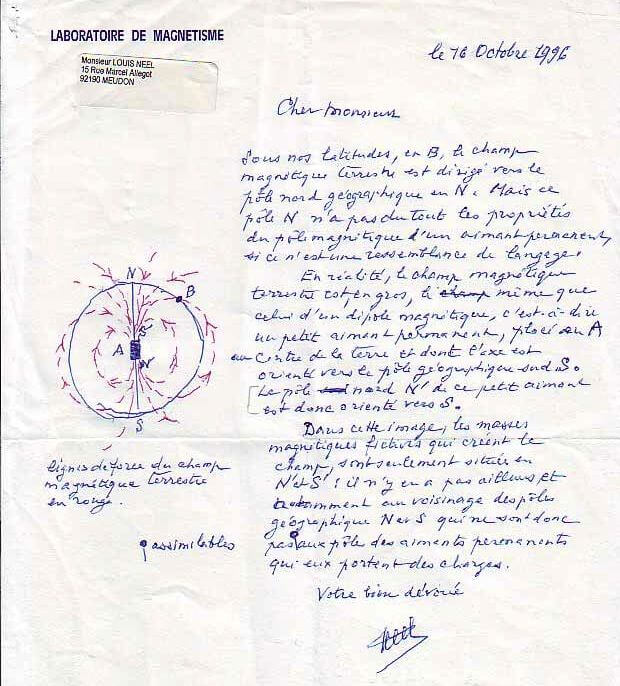 LABORATOIRE DE MAGNETISME
Monsieur LOUIS NEEL
15 Rue Marcel Allegot
92190 MEUDON
le 16 Octobre 1996
Cher Monsieur
Sous nos latitudes, en B, le champ
magnétique terrestre est dirigé vers le
pôle nord géographique en N. Mais ce
pôle N n'a pas du tout les propriétés
du pôle magnétique d'un aimant permanent,
si ce n'est une ressemblance de langage.
En réalité, le champ magnétique
terrestre est, en gros, le champ même que
celui d'un dipôle magnétique, c'est-à-dire
un petit aimant permanent, placé en A
au Centre de la terre et dont l'axe est
orienté vers le pôle géographique sud S.
Le pôle nord N' de ce petit aimant
est donc orienté vers S.
Dans cette image, les masses
magnétiques fictives qui créent le
champ, sont seulement située en
N' et S' : il n'y en a pas ailleurs et
notamment au voisinage des pôles
géographique N et S qui ne sont donc
pas aux pôle des aimants permanents
qui eux portent des charges.
Votre bien dévoué
N
B
S'
A
N'
S
lignes de force du champ
magnétique terrestre
en rouge.
assimilables